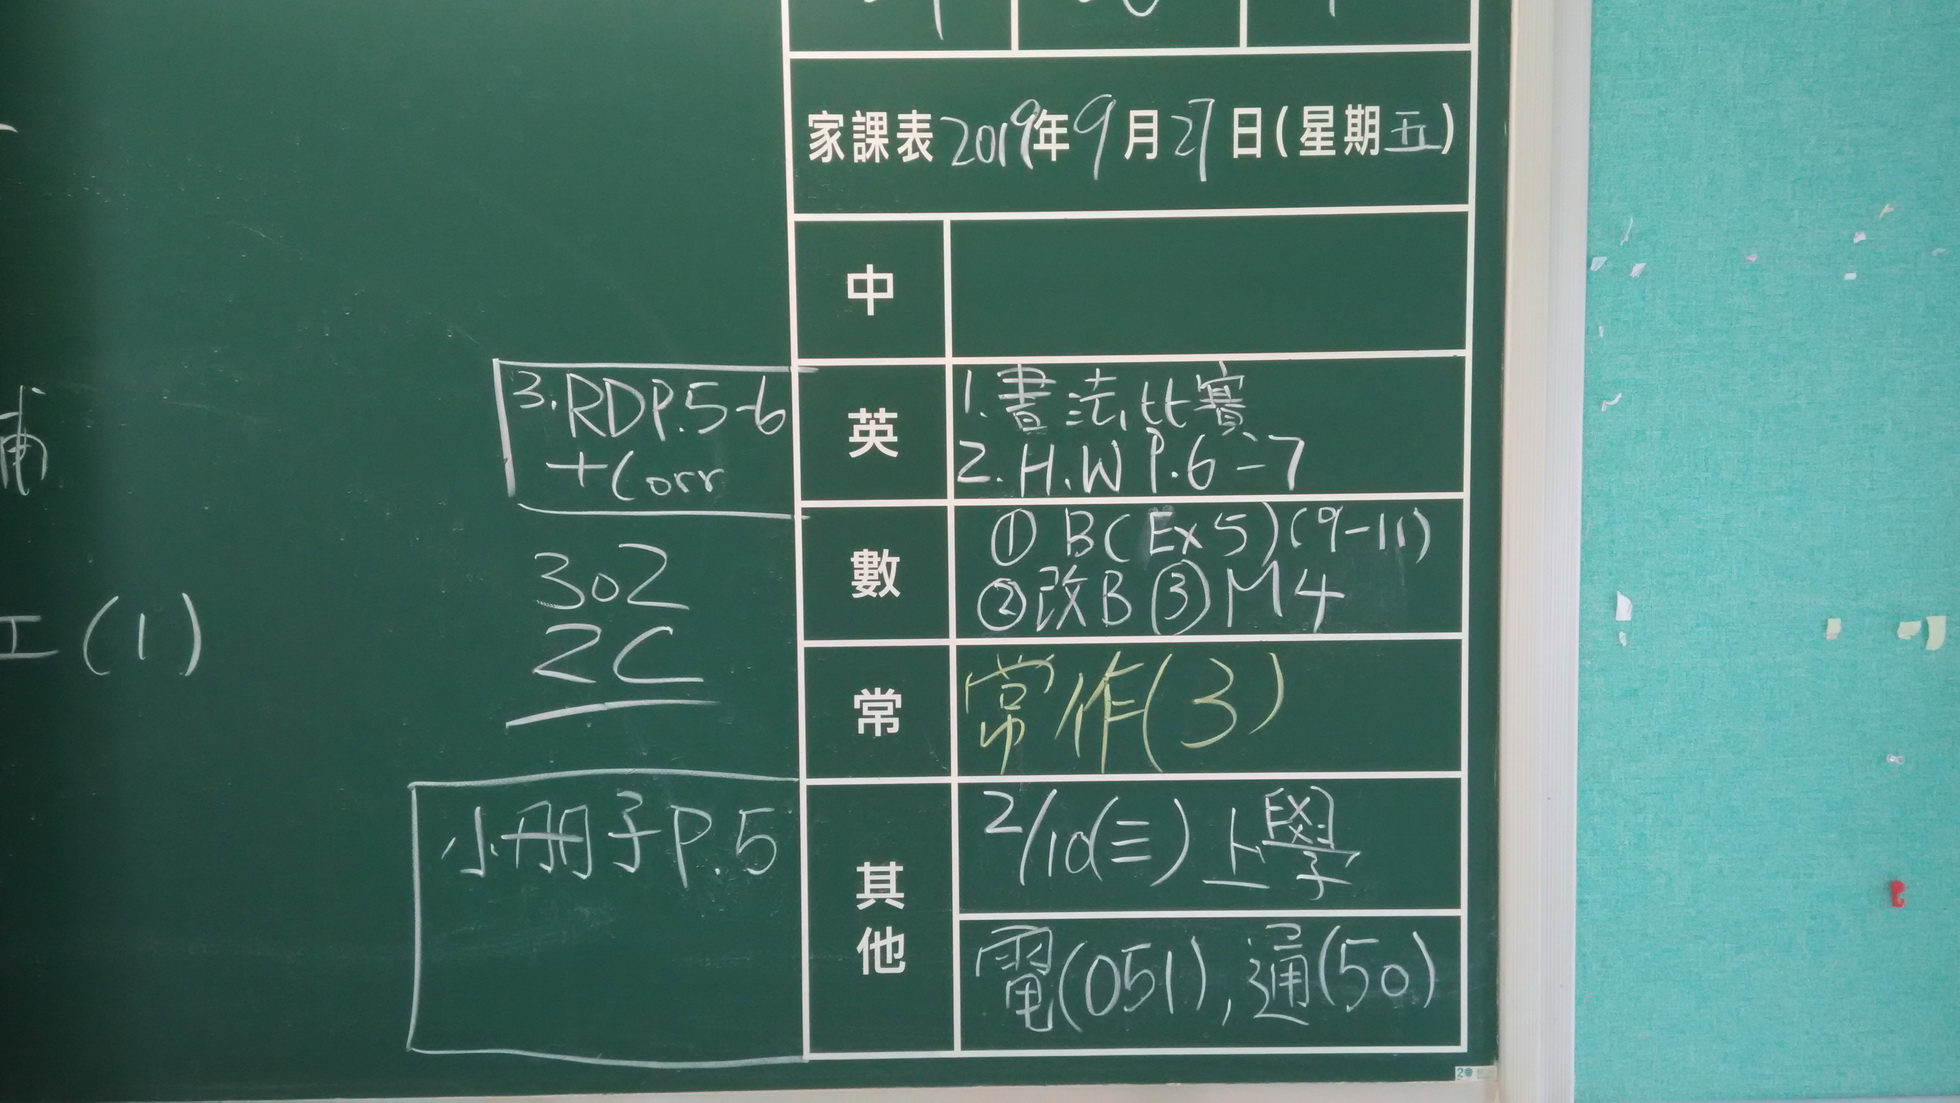 家課表 2019年9月27日(星期五)
中
英
1. 書法比賽
2. H.W P.6-7
3. RD P.5-6
+Corr
數
① B(Ex5)(9-11)
② 改B ③ M4
302
2C
常
常作(3)
工(1)
其他
2/10(三)上學
電(051), 通(50)
小冊子 P.5